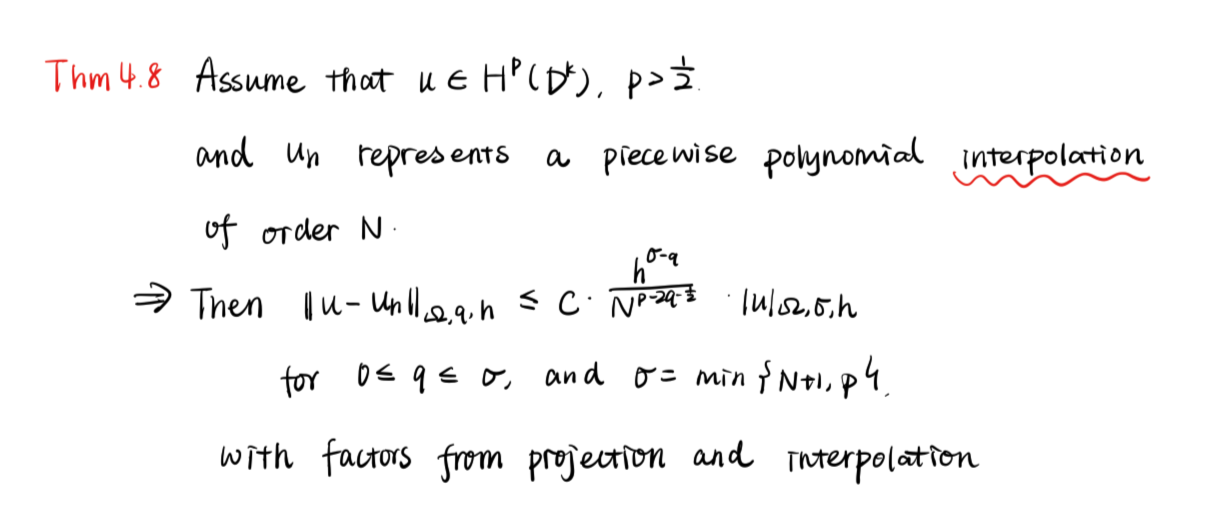 Thm 4.8 Assume that u ∈ H^p(D^k), p > 1/2.
and u_h represents a piecewise polynomial interpolation
of order N.
⇒ Then ‖u - u_h‖_{Ω,q,h} ≤ C · h^{σ-q} / N^{p-2q-1/2} · |u|_{Ω,σ,h}
for 0 ≤ q ≤ σ, and σ = min {N+1, p}.
with factors from projection and interpolation